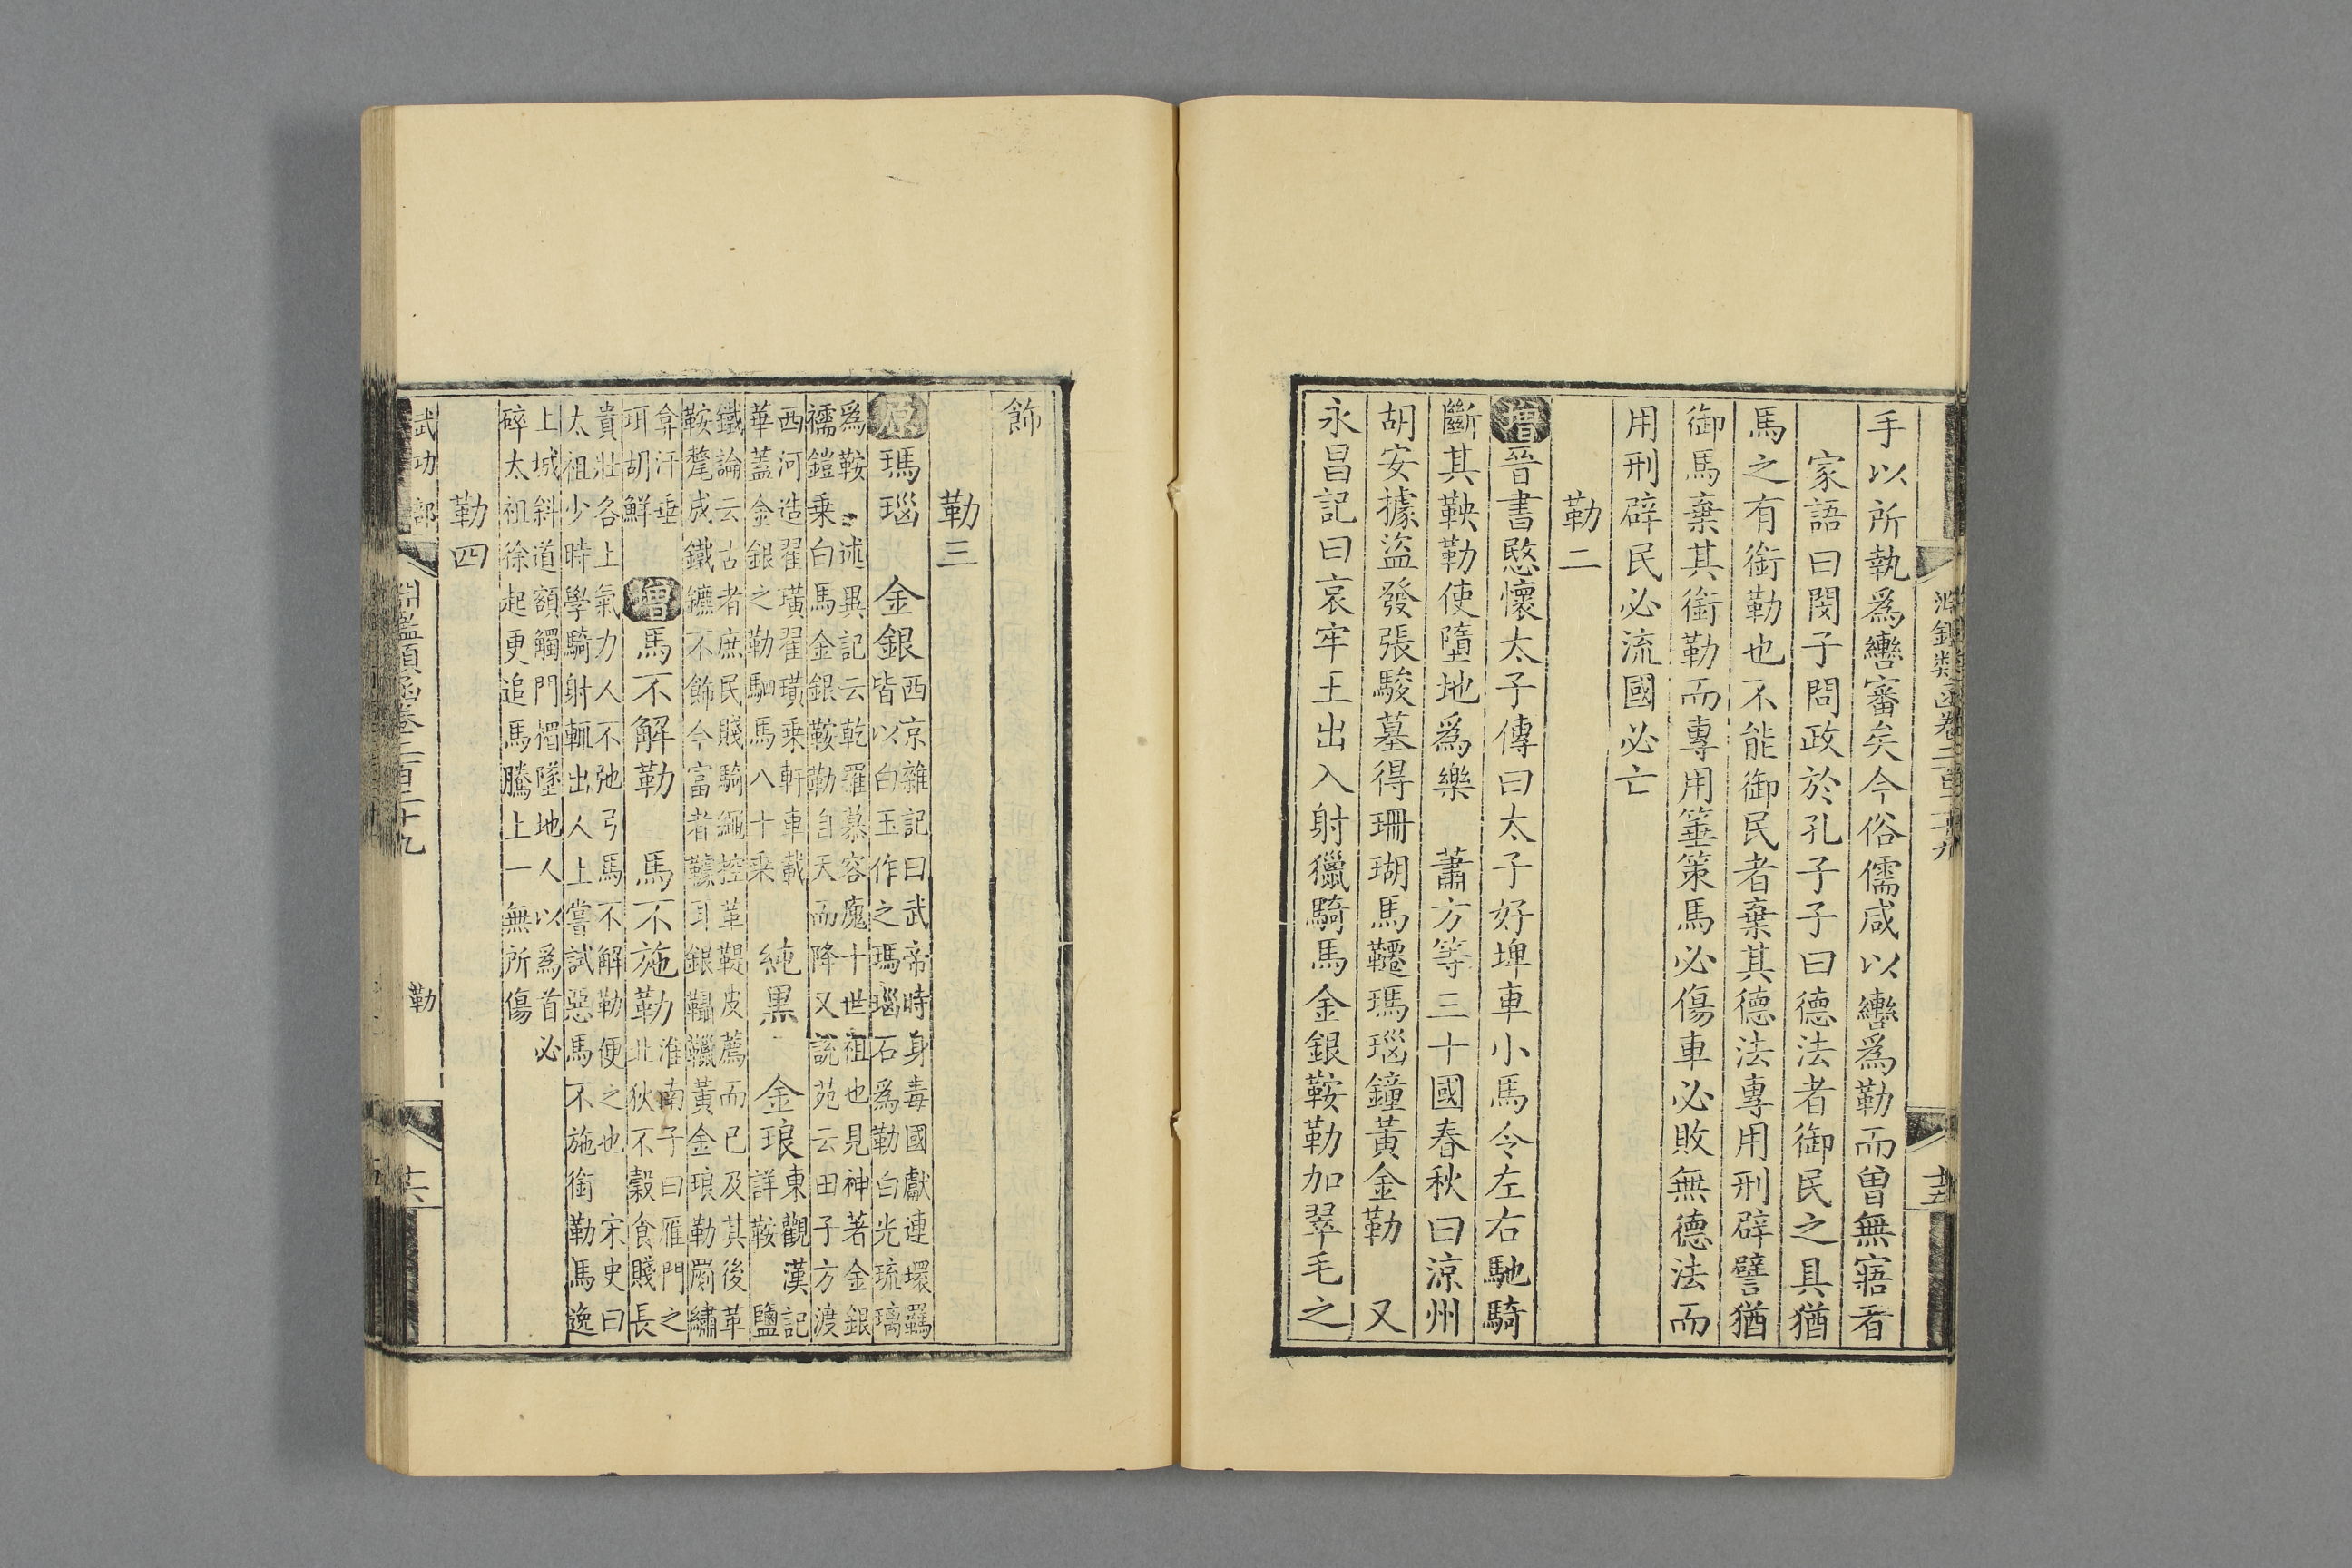 手以所執爲轡審矣今俗儒咸以轡爲勒而曾無寤者
家語曰閔子問政於孔子子曰德法者御民之具猶
馬之有銜勒也不能御民者棄其德法專用刑辟譬猶
御馬棄其銜勒而專用箠策馬必傷車必敗無德法而
用刑辟民必流國必亡
勒二
增晉書愍懷太子傳曰太子好埤車小馬令左右馳騎
斷其鞅勒使墮地爲樂 蕭方等三十國春秋曰涼州
胡安據盜發張駿墓得珊瑚馬鞭瑪瑙鐘黃金勒 又
永昌記曰哀牢王出入射獵騎馬金銀鞍勒加翠毛之
飾
勒三
原瑪瑙 金銀西京雜記曰武帝時身毒國獻連環羈
皆以白玉作之瑪瑙石爲勒白光琉璃
爲鞍 述異記云乾羅慕容廆十世祖也見神著金銀
襦鎧乗白馬金銀鞍勒自天而降又說苑云田子方渡
西河造翟璜翟璜乗軒車載
華蓋金銀之勒駟馬八十乗 純黑 金琅東觀漢記
詳鞍 鹽
鐵論云古者庶民賤騎繩控革鞮皮薦而已及其後革
鞍氂成鐵鑣不飾今富者 耳銀鑷 黃金琅勒罽繡
弇汗垂
珥胡鮮 增馬不解勒 馬不施勒淮南子曰雁門之
北狄不穀食賤長
貴壯各上氣力人不弛弓馬不解勒便之也 宋史曰
太祖少時學騎射輒出人上嘗試惡馬不施銜勒馬逸
上城斜道額觸門楣墜地人以爲首必
碎太祖徐起更追馬騰上一無所傷
勒四
武功部 淵鑑類函卷二百二十九 勒 十六